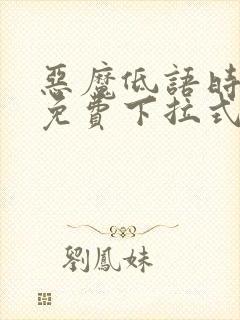 惡魔低語時
免費下拉式
劉鳳妹